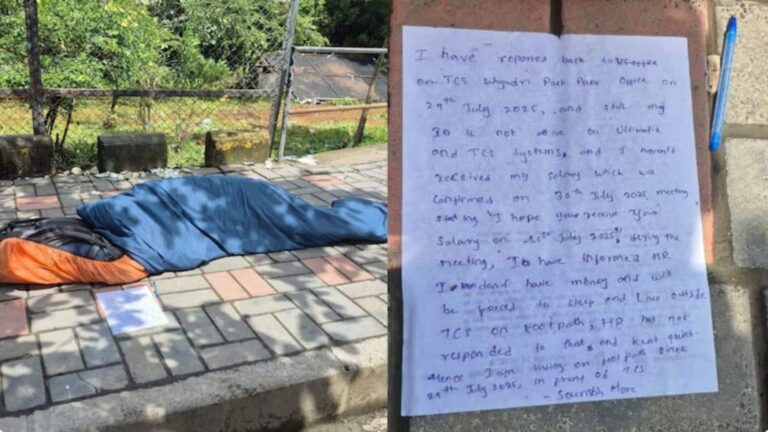 I have reported back to Office
on TCS Sahyadri Park Pune Office on
29th July 2025, and still my
ID is not active on Ultimatix
and TCS systems, and I haven't
received my salary which was
confirmed on 30th July 2025, meeting
stating "I hope you receive your
salary on 31st July 2025", during the
meeting, I have informed HR
I don't have money and will
be forced to sleep and live outside
TCS on footpath, HR has not
responded to that, and kept quiet.
Hence I am living on footpath since
29th July 2025, in front of TCS
- Saurabh More